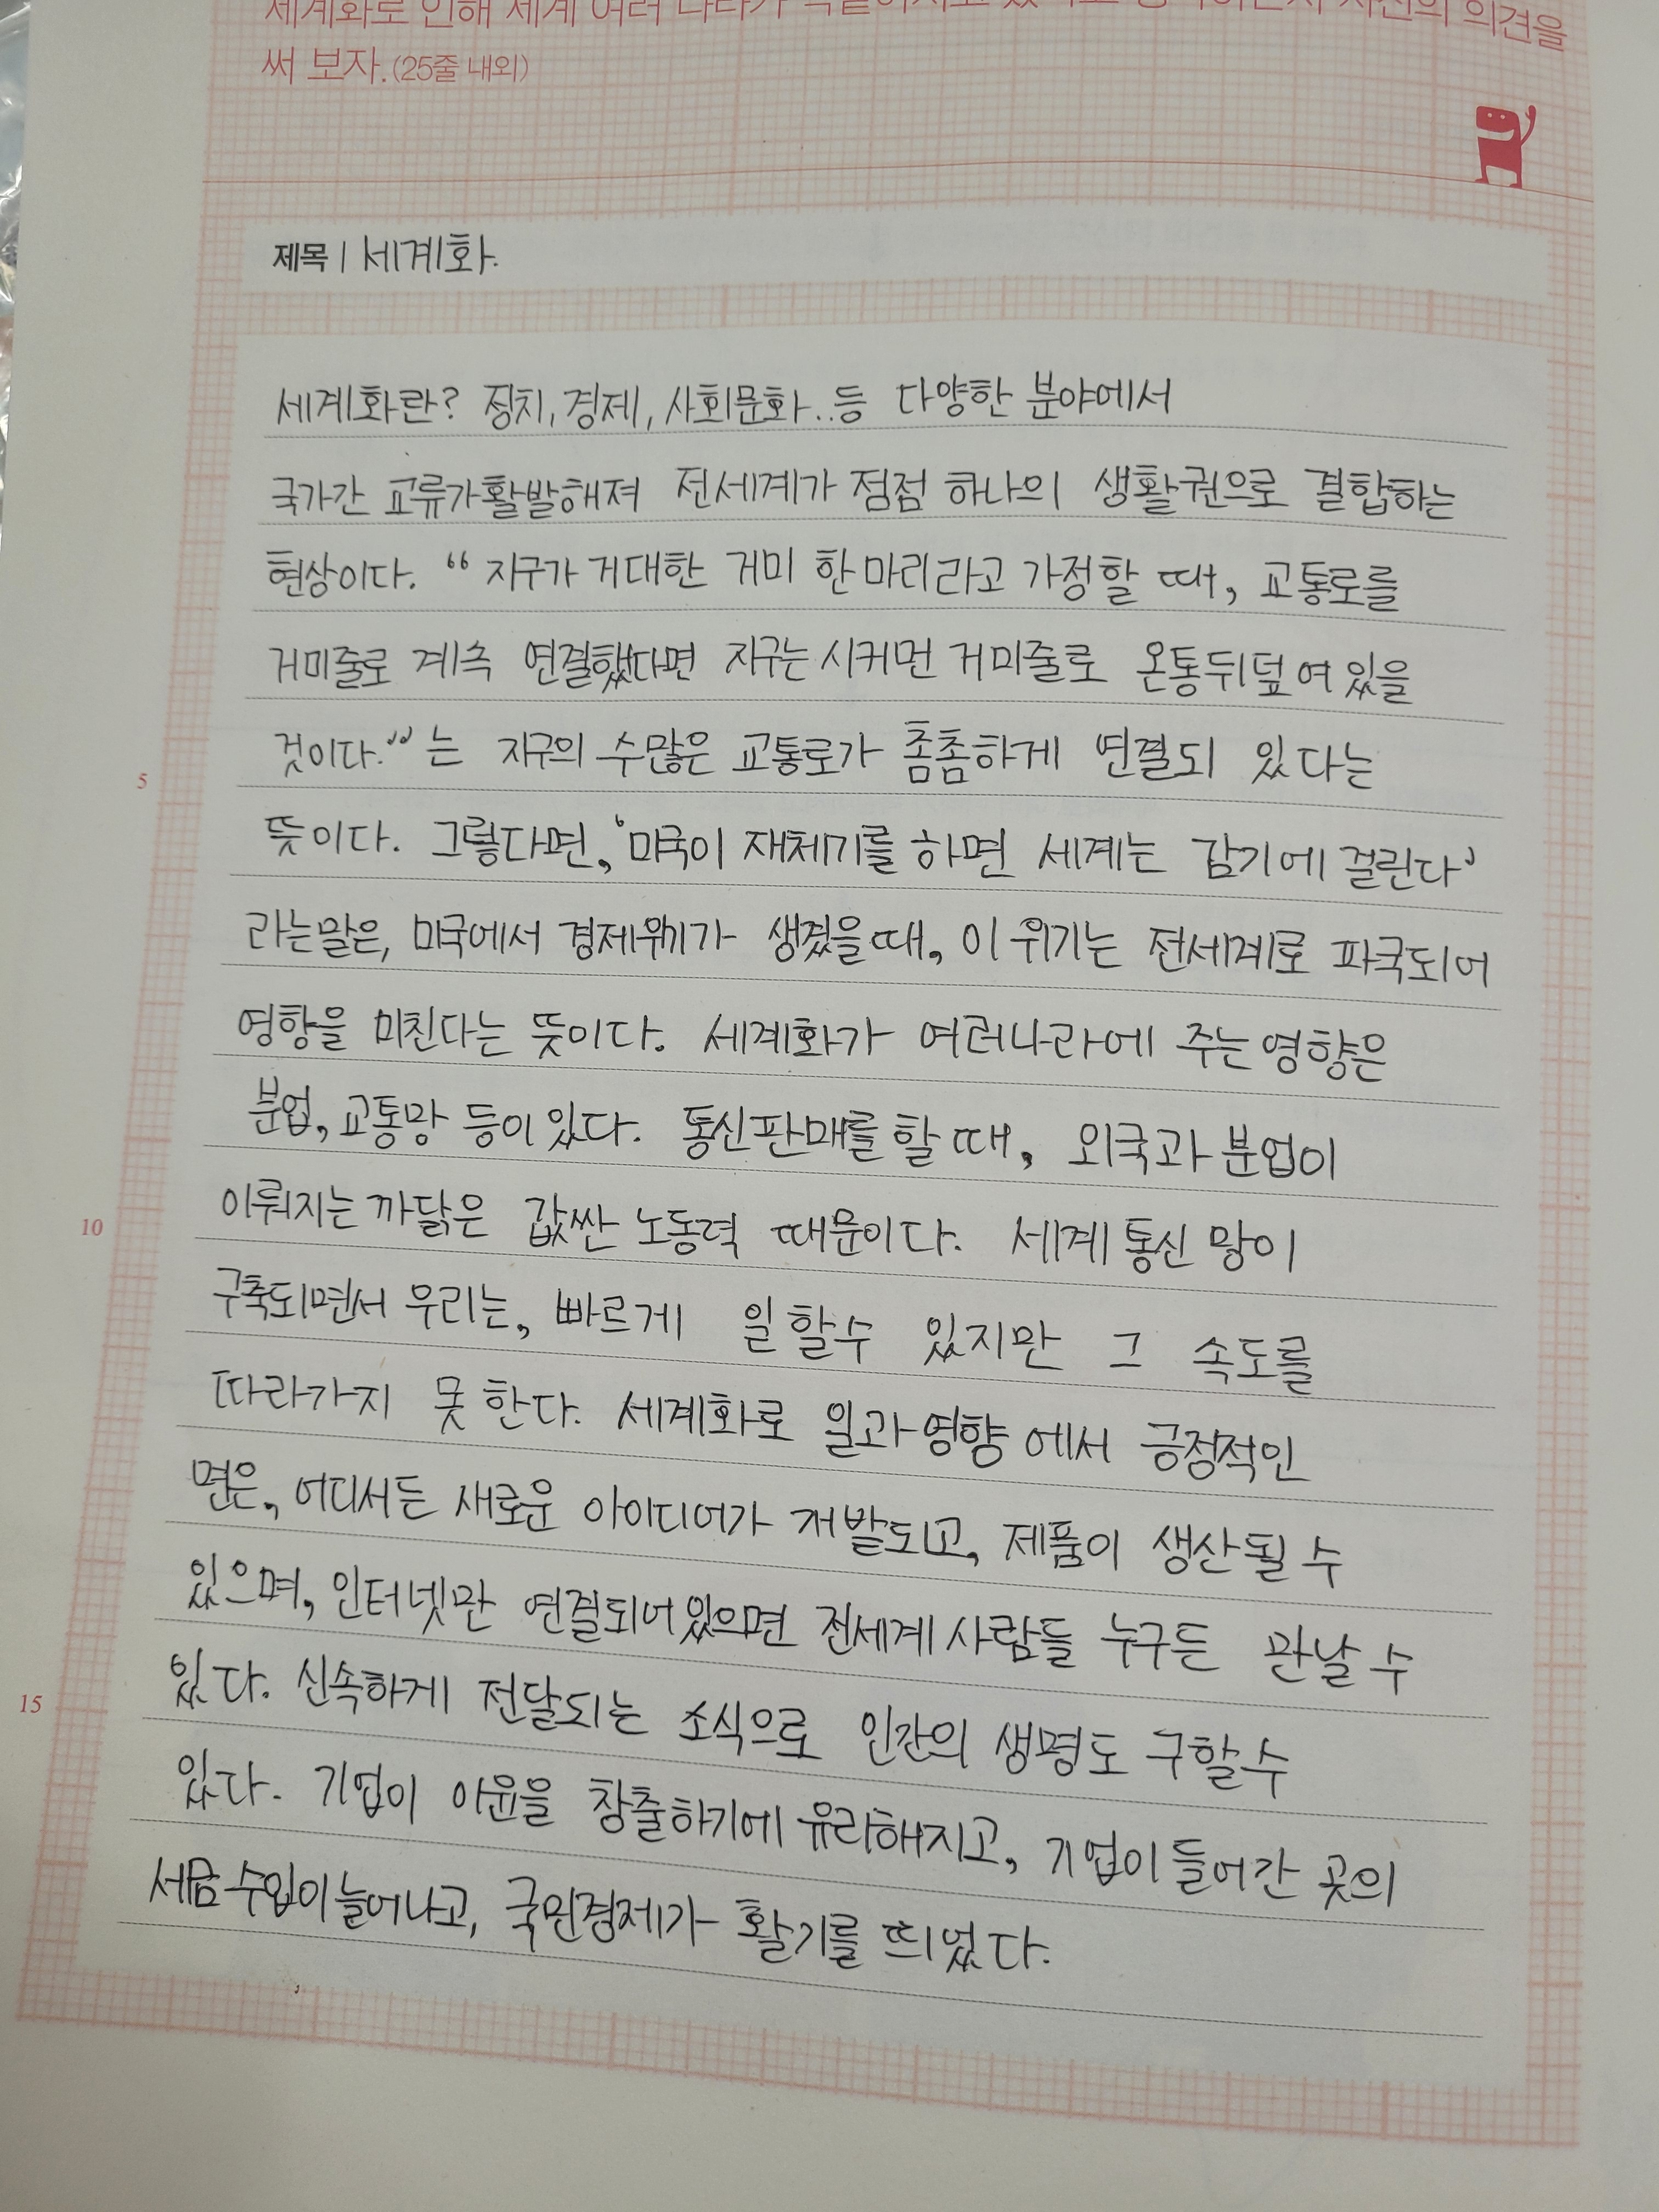 써 보자.(25줄 내외)
제목 | 세계화.
세계화란? 정치, 경제, 사회문화..등 다양한 분야에서
국가간 교류가활발해져 전세계가 점점 하나의 생활권으로 결합하는
현상이다. “ 지구가 거대한 거미 한마리라고 가정할 때, 교통로를
거미줄로 계속 연결했다면 지구는 시커먼 거미줄로 온통뒤덮여있을
5 것이다.”는 지구의 수많은 교통로가 촘촘하게 연결되 있다는
뜻이다. 그렇다면, ‘미국이 재채기를 하면 세계는 감기에 걸린다’
라는말은, 미국에서 경제위기가 생겼을때, 이 위기는 전세계로 파국되어
영향을 미친다는 뜻이다. 세계화가 여러나라에 주는영향은
분업, 교통망 등이있다. 통신판매를 할 때, 외국과 분업이
10 이뤄지는 까닭은 값싼 노동력 때문이다. 세계통신 망이
구축되면서 우리는, 빠르게 일 할수 있지만 그 속도를
따라가지 못한다. 세계화로 일과영향 에서 긍정적인
면은, 어디서든 새로운 아이디어가 개발되고, 제품이 생산될 수
있으며, 인터넷만 연결되어있으면 전세계사람들 누구든 만날 수
15 있다. 신속하게 전달되는 소식으로 인간의 생명도 구할수
있다. 기업이 이윤을 창출하기에 유리해지고, 기업이 들어간 곳의
세금수입이늘어나고, 국민경제가 활기를 띄었다.